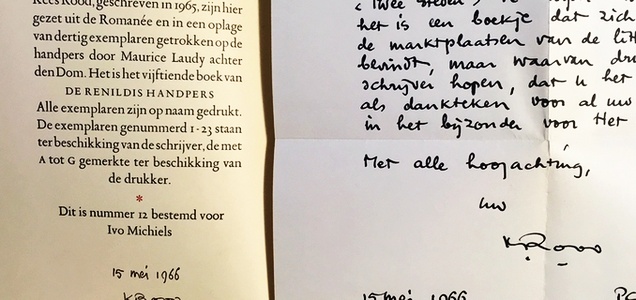 Kees Rood, geschreven in 1965, zijn hier
gezet uit de Romanée en in een oplage
van dertig exemplaren getrokken op de
handpers door Maurice Laudy achter
den Dom. Het is het vijftiende boek van
DE RENILDIS HANDPERS
Alle exemplaren zijn op naam gedrukt.
De exemplaren genummerd 1-23 staan
ter beschikking van de schrijver, de met
A tot G gemerkte ter beschikking van
de drukker.
*
Dit is nummer 12 bestemd voor
Ivo Michiels
15 mei 1966
KRood
het is een boekje dat zich
de marktplaatsen van de
bevindt, maar waarvan
schrijver hopen, dat u het
als dankteken voor al uw
in het bijzonder voor Het
Met alle hoogachting,
uw
KRood
15 mei 1966